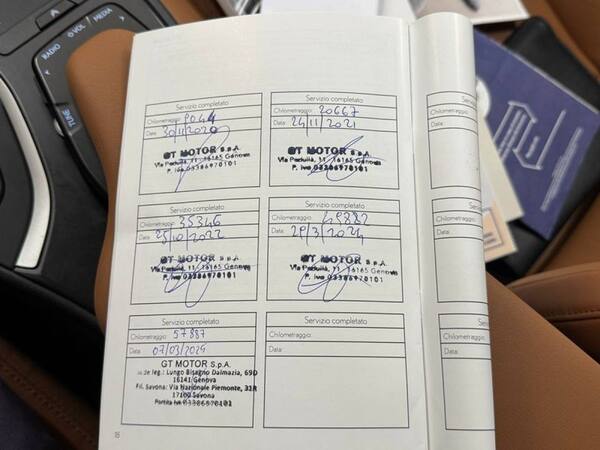 RADIO
VOL
MEDIA
TUNE
Servizio completato
Chilometraggio: 9044
Data: 30/11/2020
GT MOTOR S.p.A.
Via Pacinotti, 11 - 16165 Genova
P. Iva 03386970101
Servizio completato
Chilometraggio: 20667
Data: 24/11/2021
GT MOTOR S.p.A.
11 16165 Genova
P. Iva 03386970101
Servizio completato
Chilometraggio: 35346
Data: 25/10/2022
GT MOTOR S.p.A.
11 - 16165 Genova
P. Iva 03386970101
Servizio completato
Chilometraggio: 49882
Data: 29/3/2024
GT MOTOR S.p.A.
11 - 16165 Genova
P. Iva 03386970101
Servizio completato
Chilometraggio: 57887
Data: 07/03/2025
GT MOTOR S.p.A.
Sede leg.: Lungo Bisagno Dalmazia, 69D
16141 Genova
Fil. Savona: Via Nazionale Piemonte, 32R
17100 Savona
Partita Iva 03386970101
Servizio completato
Chilometraggio:
Data:
Chilometraggio
Data:
Chilometraggio
Data:
Chilometraggio
Data:
16